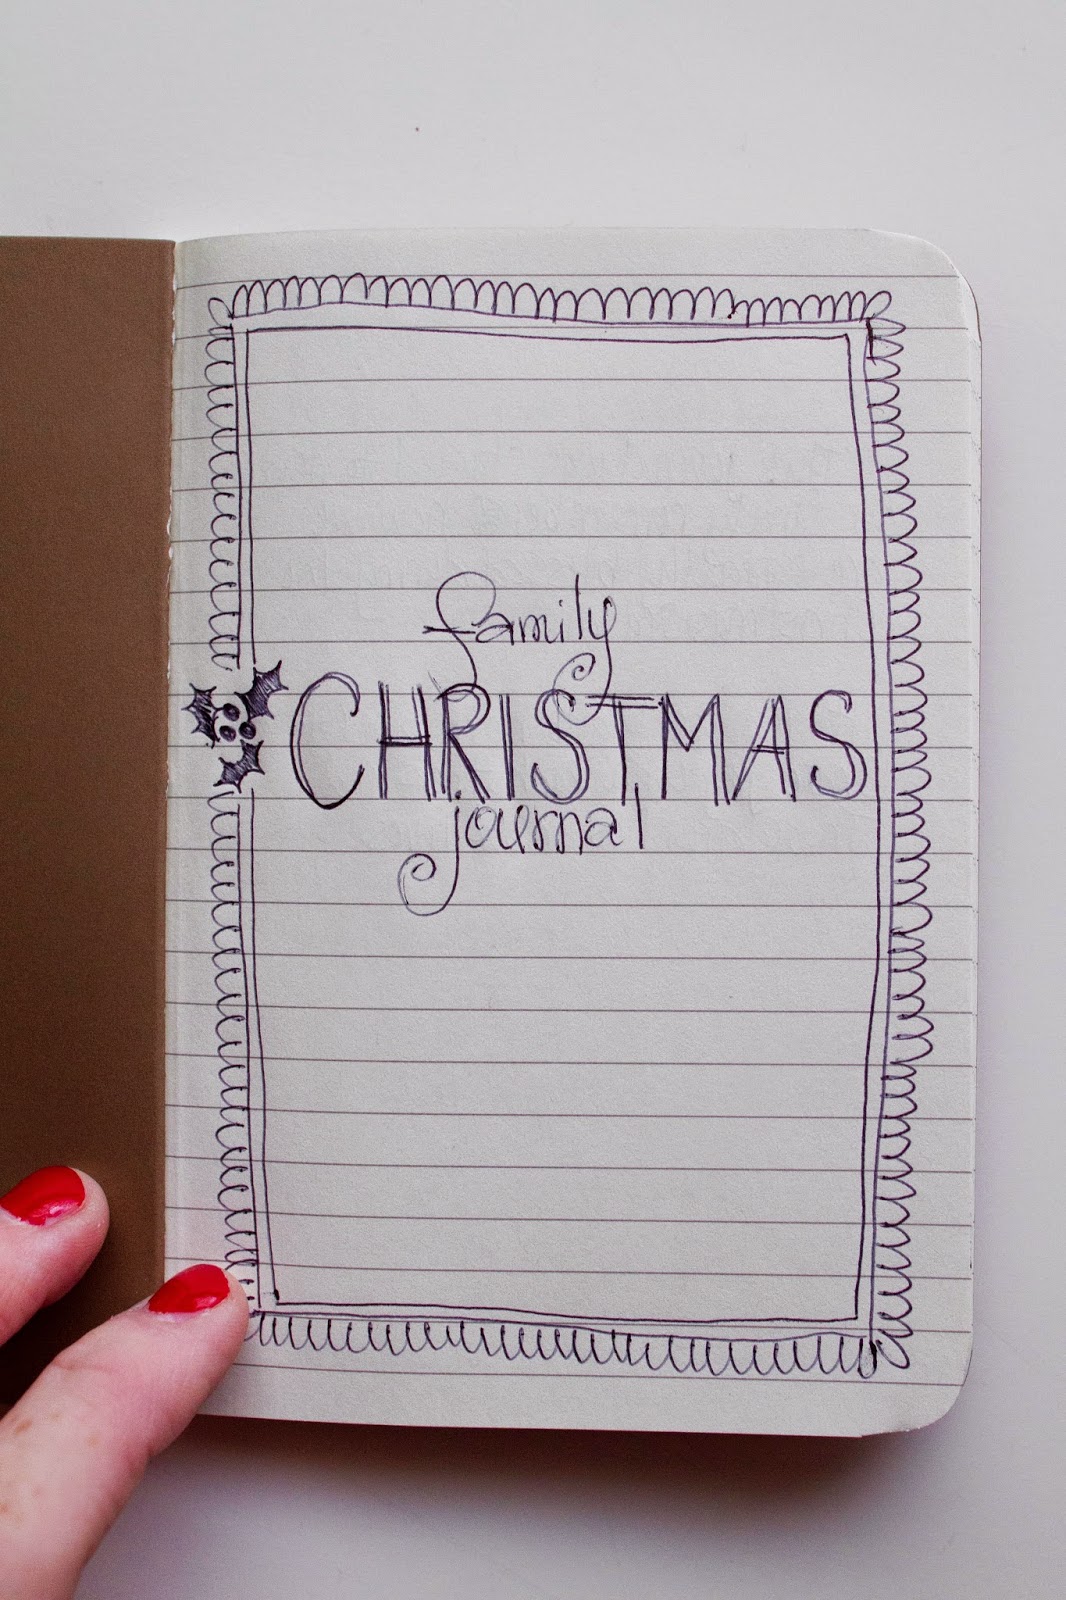 family
CHRISTMAS
journal